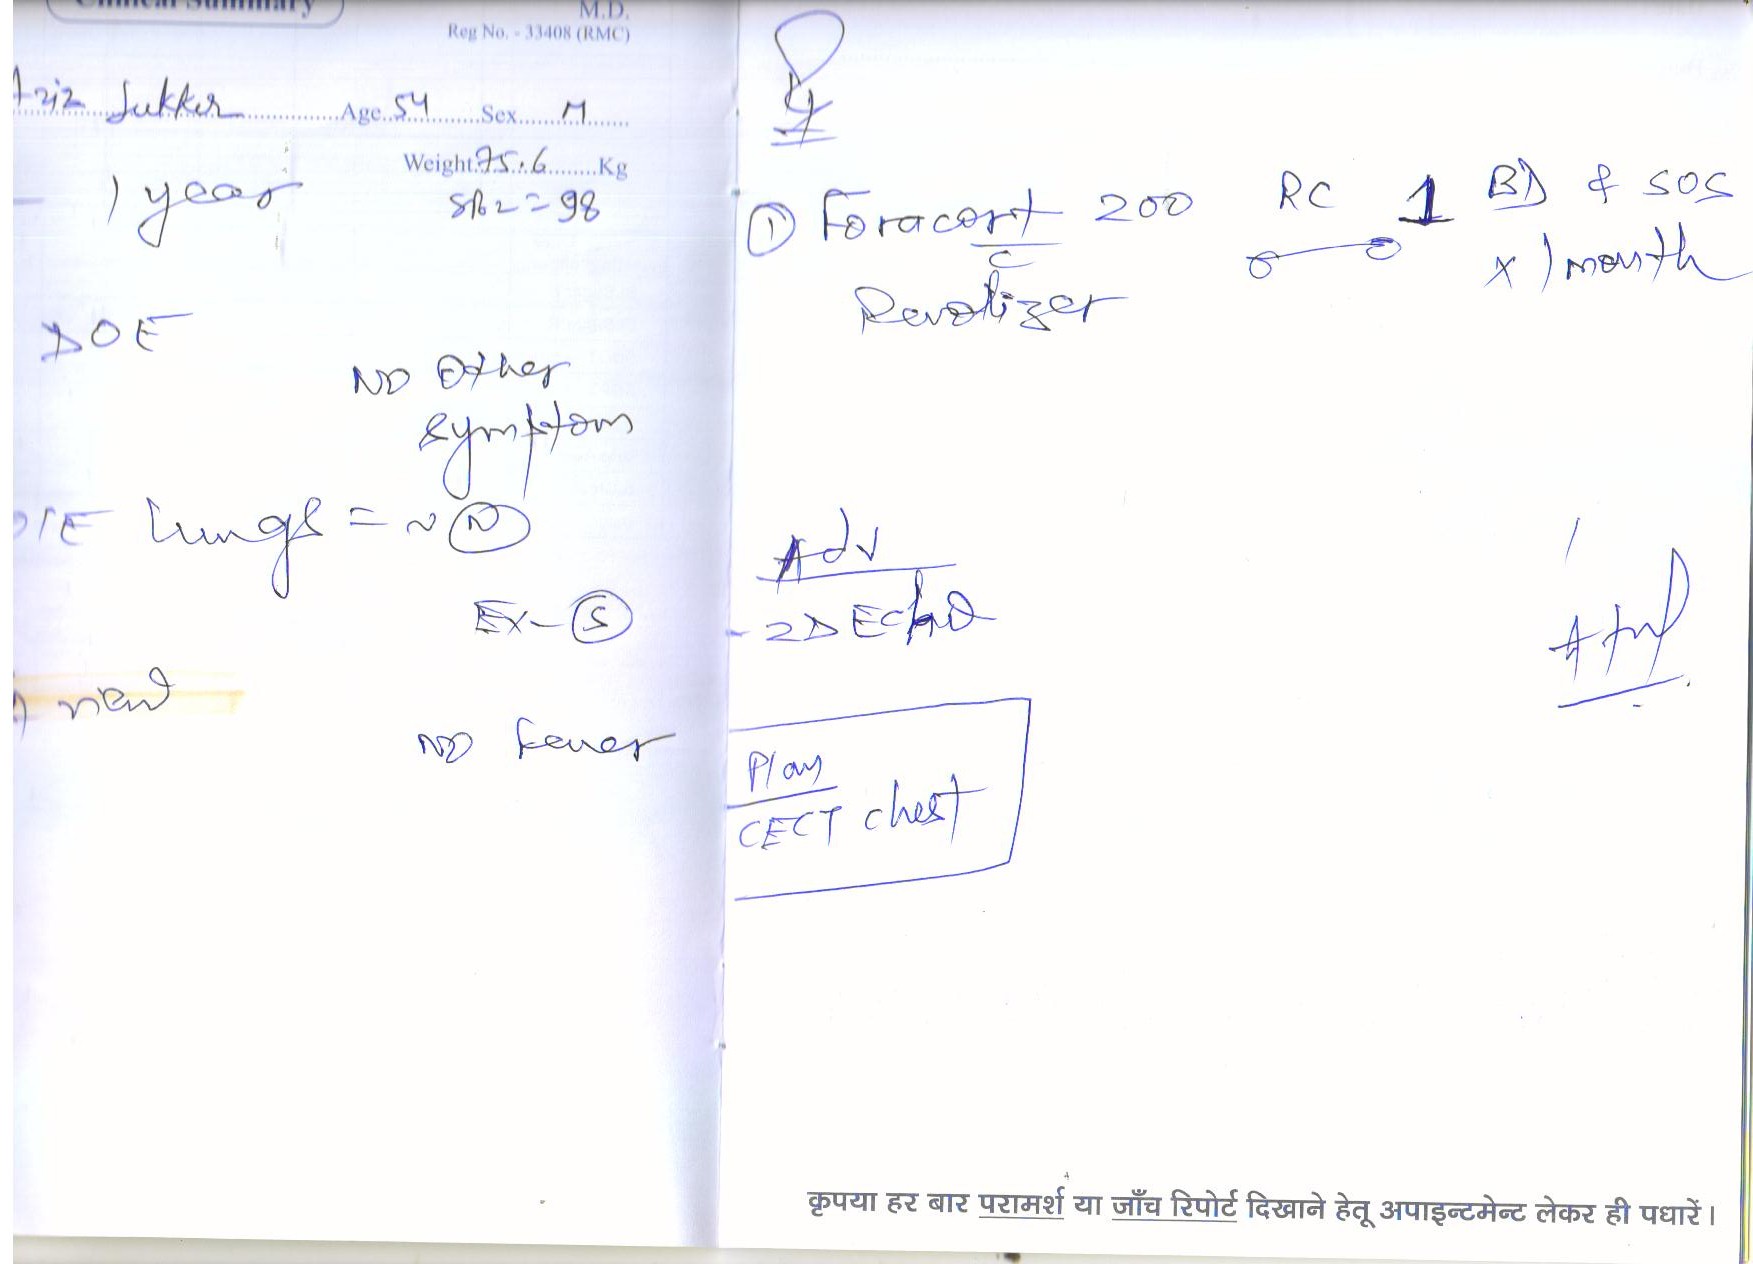 Clinical Summary
M.D.
Reg No. - 33408 (RMC)
Aziz Age 54 Sex M
Weight 75.6 Kg
1 year
SpO2 = 98
DOE
NO Other
Symptom
O/E Lungs = N
Ex - S
NO Fever
① Foracort 200 RC 1 BD & SOS
c x 1 month
Revolizer
Adv
- 2D Echo
Plan
CECT chest
कृपया हर बार परामर्श या जाँच रिपोर्ट दिखाने हेतू अपाइन्टमेन्ट लेकर ही पधारें।